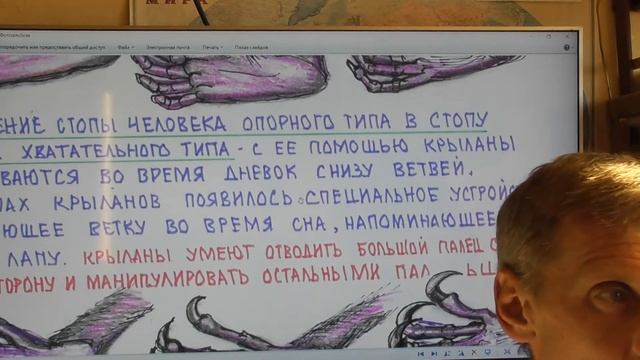 МИРА
Файл
Электронная почта
Печать
Показ слайдов
ЕНИЕ СТОПЫ ЧЕЛОВЕКА ОПОРНОГО ТИПА В СТОПУ
ХВАТАТЕЛЬНОГО ТИПА - С ЕЕ ПОМОЩЬЮ КРЫЛАНЫ
ВАЮТСЯ ВО ВРЕМЯ ДНЕВОК СНИЗУ ВЕТВЕЙ.
ПАХ КРЫЛАНОВ ПОЯВИЛОСЬ СПЕЦИАЛЬНОЕ УСТРОЙС
АЮЩЕЕ ВЕТКУ ВО ВРЕМЯ СНА, НАПОМИНАЮЩЕЕ
ЛАПУ. КРЫЛАНЫ УМЕЮТ ОТВОДИТЬ БОЛЬШОЙ ПАЛЕЦ С
ТОРОНУ И МАНИПУЛИРОВАТЬ ОСТАЛЬНЫМИ ПАЛ ЬЦ